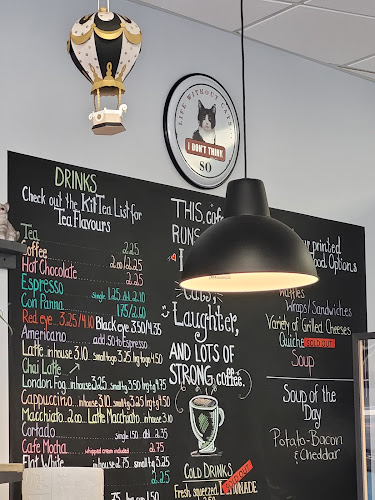 LIFE WITHOUT CATS
I DON'T THINK
SO
DRINKS
Check out the KitTea List for
Tea Flavours
Tea 2.25
Coffee 2.00/2.25
Hot Chocolate 2.25
Espresso single 1.25 dbl 2.10
Con Panna 1.75/2.60
Red eye 3.25/4.10 Black eye 3.50/4.35
Americano add .50 to Espresso
Latte in house 3.10 small to go 3.25 lrg to go 4.50
Chai Latte
London Fog in house 3.25 small 3.50 lrg 4.75
Cappuccino in house 3.10 small 3.25 lrg 4.50
Macchiato 2.00 Latte Macchiato in house 3.10
Cortado single 1.50 dbl 2.35
Cafe Mocha whipped cream included 2.75
Flat White in house 2.75 small 3.25
THIS cafe
RUNS
Laughter,
AND LOTS OF
STRONG coffee.
COLD DRINKS
Fresh squeezed LEMONADE
printed
Food Options
Waffles
Wraps/Sandwiches
Variety of Grilled Cheeses
Quiche SOLD OUT!
Soup
Soup of the
Day
Potato-Bacon
& Cheddar